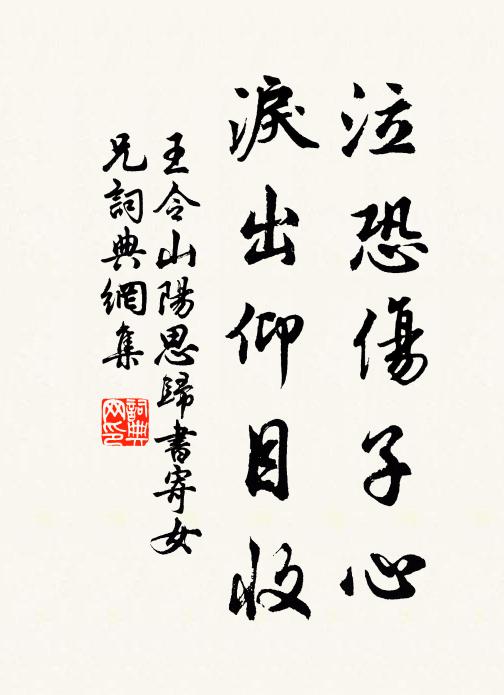 泣恐傷子心
淚出仰目收
王令山陽思歸書寄女
兄詞典網集
詞典
网印